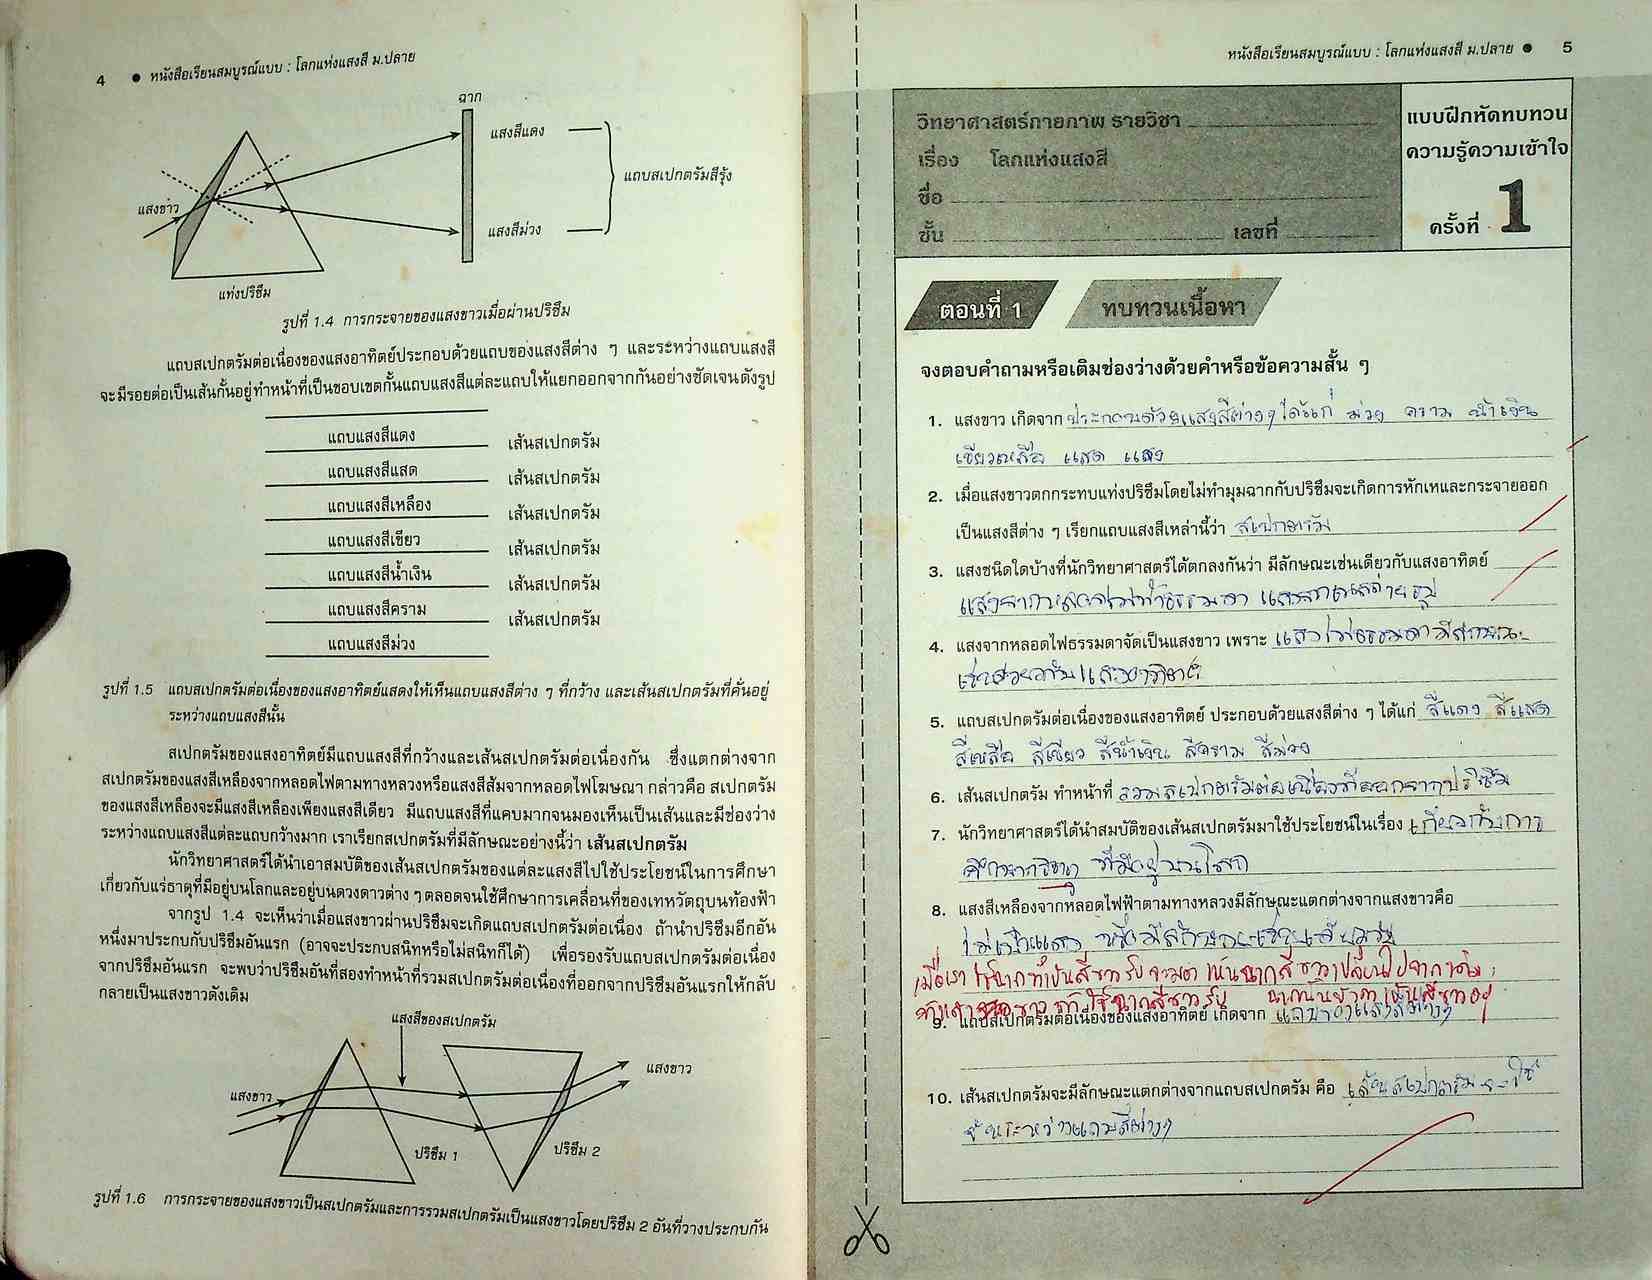 4 ● หนังสือเรียนสมบูรณ์แบบ : โลกแห่งแสงสี ม.ปลาย
ฉาก
แสงสีแดง
แถบสเปกตรัมสีรุ้ง
แสงขาว
แสงสีม่วง
แท่งปริซึม
รูปที่ 1.4 การกระจายของแสงขาวเมื่อผ่านปริซึม
แถบสเปกตรัมต่อเนื่องของแสงอาทิตย์ประกอบด้วยแถบของแสงสีต่าง ๆ และระหว่างแถบแสงสี
จะมีรอยต่อเป็นเส้นกั้นอยู่ทำหน้าที่เป็นขอบเขตกั้นแถบแสงสีแต่ละแถบให้แยกออกจากกันอย่างชัดเจนดังรูป
แถบแสงสีแดง
เส้นสเปกตรัม
แถบแสงสีแสด
เส้นสเปกตรัม
แถบแสงสีเหลือง
เส้นสเปกตรัม
แถบแสงสีเขียว
เส้นสเปกตรัม
แถบแสงสีน้ำเงิน
เส้นสเปกตรัม
แถบแสงสีคราม
เส้นสเปกตรัม
แถบแสงสีม่วง
รูปที่ 1.5 แถบสเปกตรัมต่อเนื่องของแสงอาทิตย์แสดงให้เห็นแถบแสงสีต่าง ๆ ที่กว้าง และเส้นสเปกตรัมที่คั่นอยู่
ระหว่างแถบแสงสีนั้น
สเปกตรัมของแสงอาทิตย์มีแถบแสงสีที่กว้างและเส้นสเปกตรัมต่อเนื่องกัน ซึ่งแตกต่างจาก
สเปกตรัมของแสงสีเหลืองจากหลอดไฟตามทางหลวงหรือแสงสีส้มจากหลอดไฟโฆษณา กล่าวคือ สเปกตรัม
ของแสงสีเหลืองจะมีแสงสีเหลืองเพียงแสงสีเดียว มีแถบแสงสีที่แคบมากจนมองเห็นเป็นเส้นและมีช่องว่าง
ระหว่างแถบแสงสีแต่ละแถบกว้างมาก เราเรียกสเปกตรัมที่มีลักษณะอย่างนี้ว่า เส้นสเปกตรัม
นักวิทยาศาสตร์ได้นำเอาสมบัติของเส้นสเปกตรัมของแต่ละแสงสีไปใช้ประโยชน์ในการศึกษา
เกี่ยวกับแร่ธาตุที่มีอยู่บนโลกและอยู่บนดวงดาวต่าง ๆ ตลอดจนใช้ศึกษาการเคลื่อนที่ของเทหวัตถุบนท้องฟ้า
จากรูป 1.4 จะเห็นว่าเมื่อแสงขาวผ่านปริซึมจะเกิดแถบสเปกตรัมต่อเนื่อง ถ้านำปริซึมอีกอัน
หนึ่งมาประกบกับปริซึมอันแรก (อาจจะประกบสนิทหรือไม่สนิทก็ได้) เพื่อรองรับแถบสเปกตรัมต่อเนื่อง
จากปริซึมอันแรก จะพบว่าปริซึมอันที่สองทำหน้าที่รวมสเปกตรัมต่อเนื่องที่ออกจากปริซึมอันแรกให้กลับ
กลายเป็นแสงขาวดังเดิม
แสงสีของสเปกตรัม
แสงขาว
แสงขาว
ปริซึม 1
ปริซึม 2
รูปที่ 1.6 การกระจายของแสงขาวเป็นสเปกตรัมและการรวมสเปกตรัมเป็นแสงขาวโดยปริซึม 2 อันที่วางประกบกัน
หนังสือเรียนสมบูรณ์แบบ : โลกแห่งแสงสี ม.ปลาย ● 5
วิทยาศาสตร์กายภาพ รายวิชา
เรื่อง โลกแห่งแสงสี
ชื่อ
ชั้น เลขที่
แบบฝึกหัดทบทวน
ความรู้ความเข้าใจ
ครั้งที่ 1
ตอนที่ 1 ทบทวนเนื้อหา
จงตอบคำถามหรือเติมช่องว่างด้วยคำหรือข้อความสั้น ๆ
1. แสงขาว เกิดจาก ประกอบด้วยแสงสีต่างๆ ได้แก่ ม่วง คราม น้ำเงิน
เขียวเหลือ แสด แสง
2. เมื่อแสงขาวตกกระทบแท่งปริซึมโดยไม่ทำมุมฉากกับปริซึมจะเกิดการหักเหและกระจายออก
เป็นแสงสีต่าง ๆ เรียกแถบแสงสีเหล่านี้ว่า สเปกตรัม
3. แสงชนิดใดบ้างที่นักวิทยาศาสตร์ได้ตกลงกันว่า มีลักษณะเช่นเดียวกับแสงอาทิตย์
แสงจากหลอดไฟฟ้าธรรมดา
4. แสงจากหลอดไฟธรรมดาจัดเป็นแสงขาว เพราะ แสงไฟธรรมดามีลักษณะ
เช่นเดียวกับแสงอาทิตย์
5. แถบสเปกตรัมต่อเนื่องของแสงอาทิตย์ ประกอบด้วยแสงสีต่าง ๆ ได้แก่ สีแดง สีแสด
สีเหลือ สีเขียว สีน้ำเงิน สีคราม สีม่วง
6. เส้นสเปกตรัม ทำหน้าที่ รวมสเปกตรัมต่อเนื่องที่ออกจากปริซึม
7. นักวิทยาศาสตร์ได้นำสมบัติของเส้นสเปกตรัมมาใช้ประโยชน์ในเรื่อง เกี่ยวกับการ
ที่มีอยู่บนโลก
8. แสงสีเหลืองจากหลอดไฟฟ้าตามทางหลวงมีลักษณะแตกต่างจากแสงขาวคือ
เมื่อเรา
9. แถบสเปกตรัมต่อเนื่องของแสงอาทิตย์ เกิดจาก แถบของแสงสีต่างๆ
10. เส้นสเปกตรัมจะมีลักษณะแตกต่างจากแถบสเปกตรัม คือ เส้นสเปกตรัมจะใช้
ระหว่างแถบสีต่างๆ